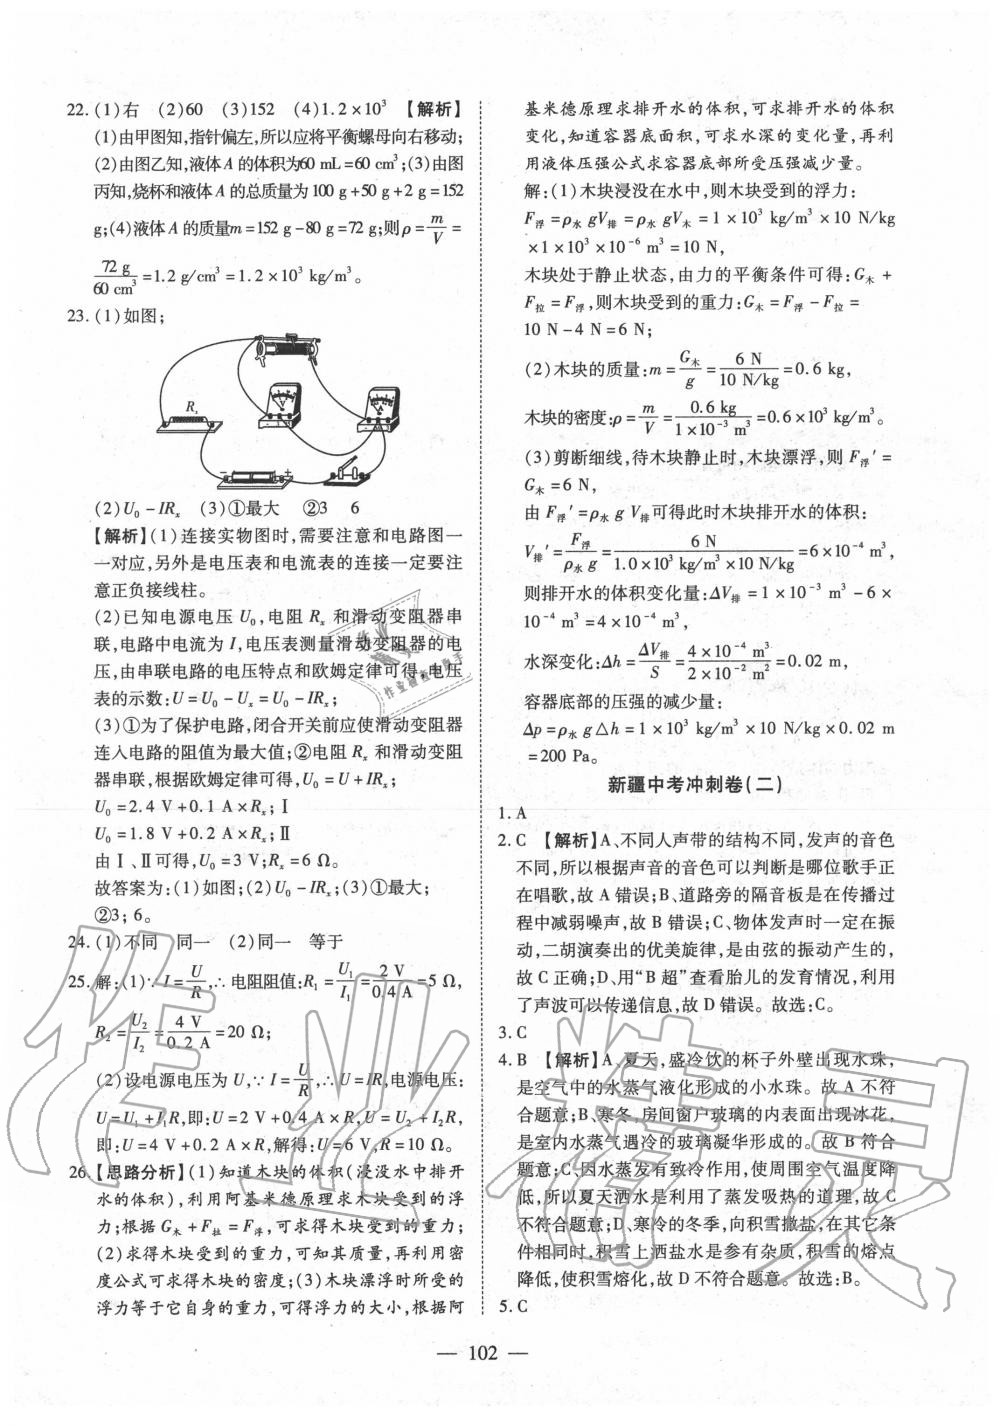 22. (1)右　(2)60　(3)152　(4)1.2×10³　【解析】
(1)由甲图知,指针偏左,所以应将平衡螺母向右移动;
(2)由图乙知,液体A的体积为60 mL=60 cm³;(3)由图
丙知,烧杯和液体A的总质量为100 g+50 g+2 g=152
g;(4)液体A的质量m=152 g-80 g=72 g;则ρ=m/V=
72 g/60 cm³=1.2 g/cm³=1.2×10³ kg/m³。
23. (1)如图;
Rₓ
- +
(2)U₀-IRₓ　(3)①最大　②3　6
【解析】(1)连接实物图时,需要注意和电路图一
一对应,另外是电压表和电流表的连接一定要注
意正负接线柱。
(2)已知电源电压U₀,电阻Rₓ和滑动变阻器串
联,电路中电流为I,电压表测量滑动变阻器的电
压,由串联电路的电压特点和欧姆定律可得,电压
表的示数:U=U₀-Uₓ=U₀-IRₓ;
(3)①为了保护电路,闭合开关前应使滑动变阻器
连入电路的阻值为最大值;②电阻Rₓ和滑动变阻
器串联,根据欧姆定律可得,U₀=U+IRₓ;
U₀=2.4 V+0.1 A×Rₓ;Ⅰ
U₀=1.8 V+0.2 A×Rₓ;Ⅱ
由Ⅰ、Ⅱ可得,U₀=3 V;Rₓ=6 Ω。
故答案为:(1)如图;(2)U₀-IRₓ;(3)①最大;
②3;6。
24. (1)不同　同一　(2)同一　等于
25. 解:(1)∵I=U/R,∴电阻阻值:R₁=U₁/I₁=2 V/0.4 A=5 Ω,
R₂=U₂/I₂=4 V/0.2 A=20 Ω;
(2)设电源电压为U,∵I=U/R,∴U=IR,电源电压:
U=U₁+I₁R,即:U=2 V+0.4 A×R,U=U₂+I₂R,
即:U=4 V+0.2 A×R,解得:U=6 V,R=10 Ω。
26.【思路分析】(1)知道木块的体积(浸没水中排开
水的体积),利用阿基米德原理求木块受到的浮
力;根据G木+F拉=F浮,可求得木块受到的重力;
(2)求得木块受到的重力,可知其质量,再利用密
度公式可求得木块的密度;(3)木块漂浮时所受的
浮力等于它自身的重力,可得浮力的大小,根据阿
基米德原理求排开水的体积,可求排开水的体积
变化,知道容器底面积,可求水深的变化量,再利
用液体压强公式求容器底部所受压强减少量。
解:(1)木块浸没在水中,则木块受到的浮力:
F浮=ρ水gV排=ρ水gV木=1×10³ kg/m³×10 N/kg
×1×10³×10⁻⁶ m³=10 N,
木块处于静止状态,由力的平衡条件可得:G木+
F拉=F浮,则木块受到的重力:G木=F浮-F拉=
10 N-4 N=6 N;
(2)木块的质量:m=G木/g=6 N/10 N/kg=0.6 kg,
木块的密度:ρ=m/V=0.6 kg/1×10⁻³ m³=0.6×10³ kg/m³。
(3)剪断细线,待木块静止时,木块漂浮,则F浮′=
G木=6 N,
由F浮′=ρ水gV排可得此时木块排开水的体积:
V排′=F浮/ρ水g=6 N/1.0×10³ kg/m³×10 N/kg=6×10⁻⁴ m³,
则排开水的体积变化量:ΔV排=1×10⁻³ m³-6×
10⁻⁴ m³=4×10⁻⁴ m³,
水深变化:Δh=ΔV排/S=4×10⁻⁴ m³/2×10⁻² m²=0.02 m,
容器底部的压强的减少量:
Δp=ρ水gΔh=1×10³ kg/m³×10 N/kg×0.02 m
=200 Pa。
新疆中考冲刺卷(二)
1. A
2. C　【解析】A、不同人声带的结构不同,发声的音色
不同,所以根据声音的音色可以判断是哪位歌手正
在唱歌,故A错误;B、道路旁的隔音板是在传播过
程中减弱噪声,故B错误;C、物体发声时一定在振
动,二胡演奏出的优美旋律,是由弦的振动产生的,
故C正确;D、用“B超”查看胎儿的发育情况,利用
了声波可以传递信息,故D错误。故选:C。
3. C
4. B　【解析】A、夏天,盛冷饮的杯子外壁出现水珠,
是空气中的水蒸气液化形成的小水珠。故A不符
合题意;B、寒冬,房间窗户玻璃的内表面出现冰花,
是室内水蒸气遇冷的玻璃凝华形成的。故B符合
题意;C、因水蒸发有致冷作用,使周围空气温度降
低,所以夏天洒水是利用了蒸发吸热的道理,故C
不符合题意;D、寒冷的冬季,向积雪撒盐,在其它条
件相同时,积雪上洒盐水是参有杂质,积雪的熔点
降低,使积雪熔化,故D不符合题意。故选:B。
5. C
— 102 —
作业精灵